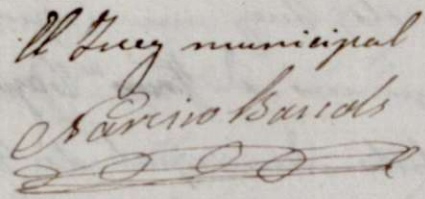 El Juez municipal
Narciso Barcels